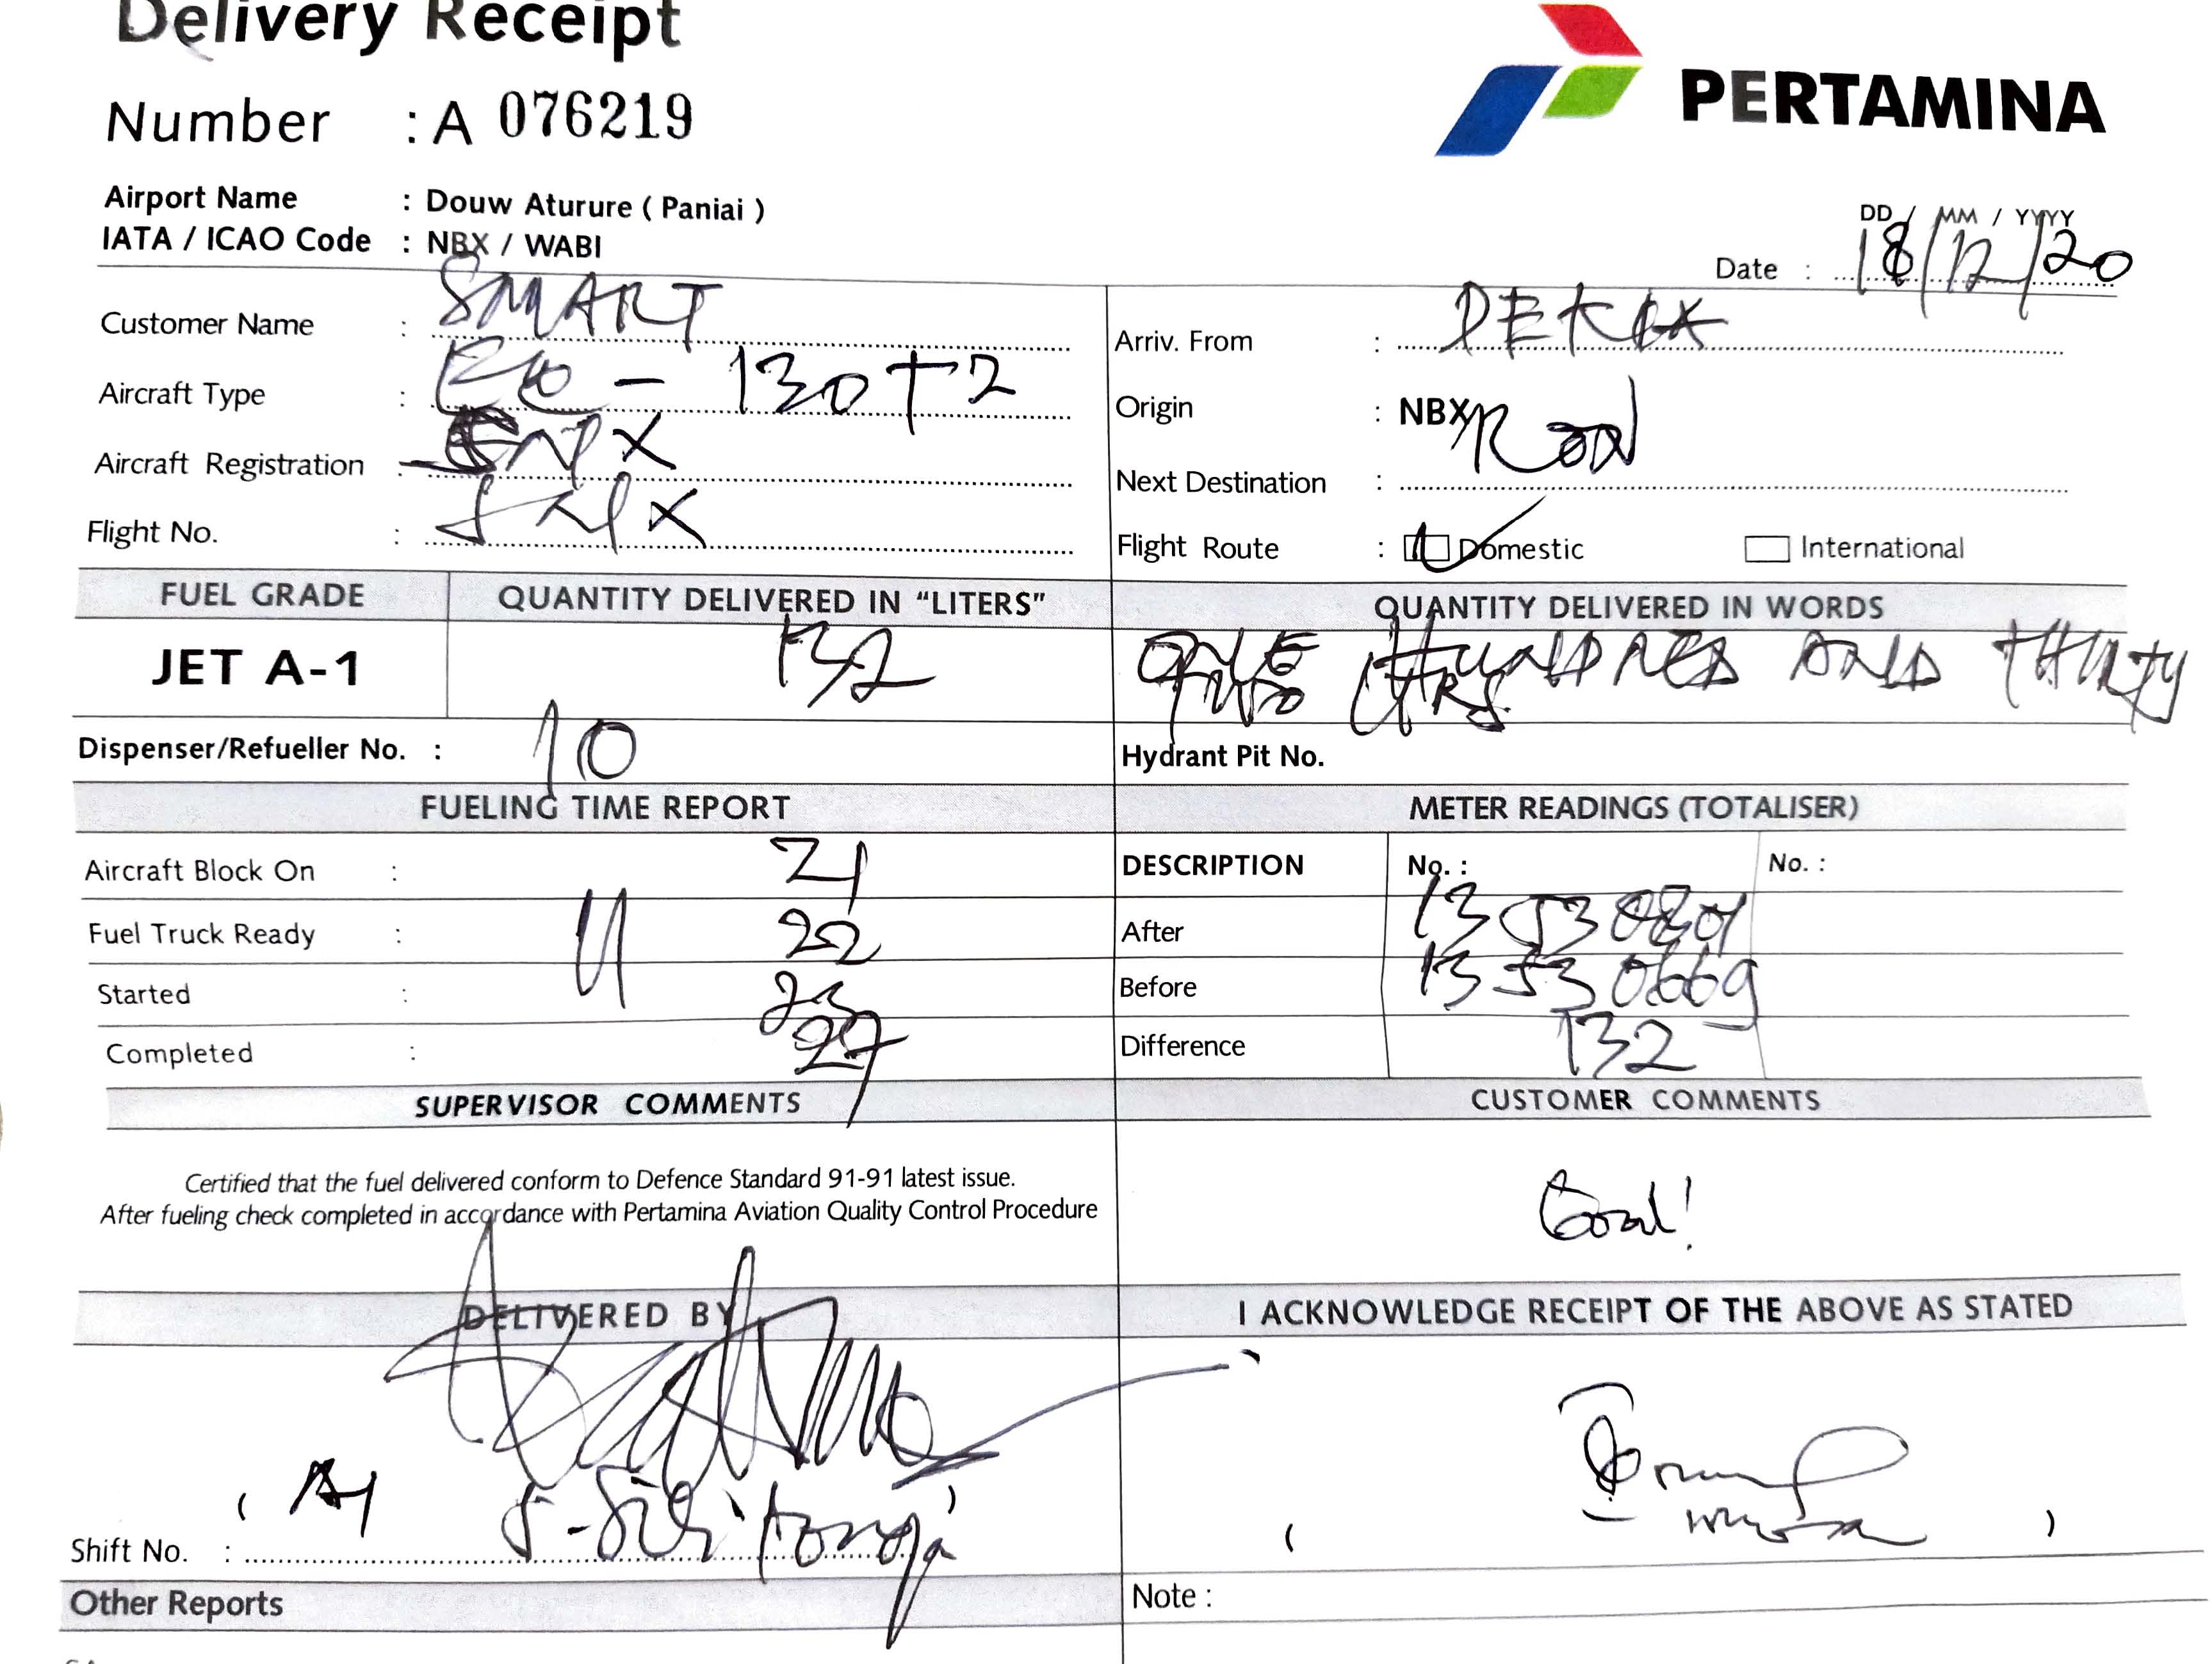 Delivery Receipt
PERTAMINA
Number : A 076219
Airport Name : Douw Aturure ( Paniai )
IATA / ICAO Code : NBX / WABI
DD / MM / YYYY
Date : 18/12/20
Customer Name : SMART
Arriv. From : DEKAI
Aircraft Type : - 130T2
Origin : NBX
Aircraft Registration :
Next Destination :
Flight No. :
Flight Route : Domestic International
FUEL GRADE QUANTITY DELIVERED IN "LITERS" QUANTITY DELIVERED IN WORDS
JET A-1 132 ONE HUNDRED AND THIRTY
TWO LTRS
Dispenser/Refueller No. : 10
Hydrant Pit No.
FUELING TIME REPORT METER READINGS (TOTALISER)
Aircraft Block On : 21
DESCRIPTION No. : No. :
Fuel Truck Ready : 22
After 13530801
Started : 23
Before 13530669
Completed : 27
Difference 132
SUPERVISOR COMMENTS CUSTOMER COMMENTS
Certified that the fuel delivered conform to Defence Standard 91-91 latest issue.
After fueling check completed in accordance with Pertamina Aviation Quality Control Procedure
Good!
DELIVERED BY I ACKNOWLEDGE RECEIPT OF THE ABOVE AS STATED
Shift No. :
Other Reports Note :